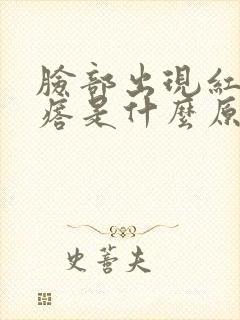 臉部出現紅
痞是什麼原
史蒼夫